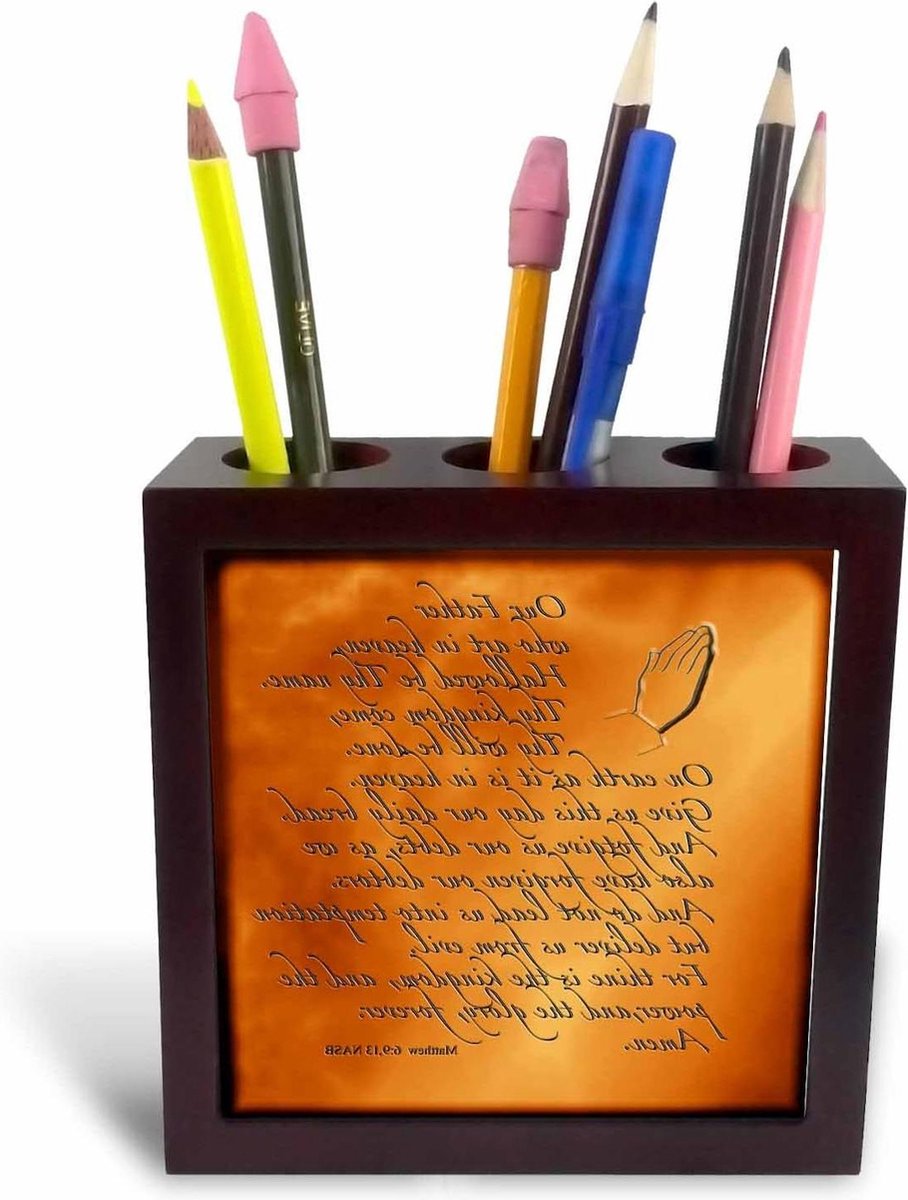 OLIVE
Our Father
who art in heaven,
Hallowed be Thy name.
Thy kingdom come,
Thy will be done.
On earth as it is in heaven.
Give us this day our daily bread.
And forgive us our debts, as we
also have forgiven our debtors.
And do not lead us into temptation
but deliver us from evil,
For thine is the kingdom, and the
power,and the glory, forever.
Amen.
Matthew 6:9,13 NASB